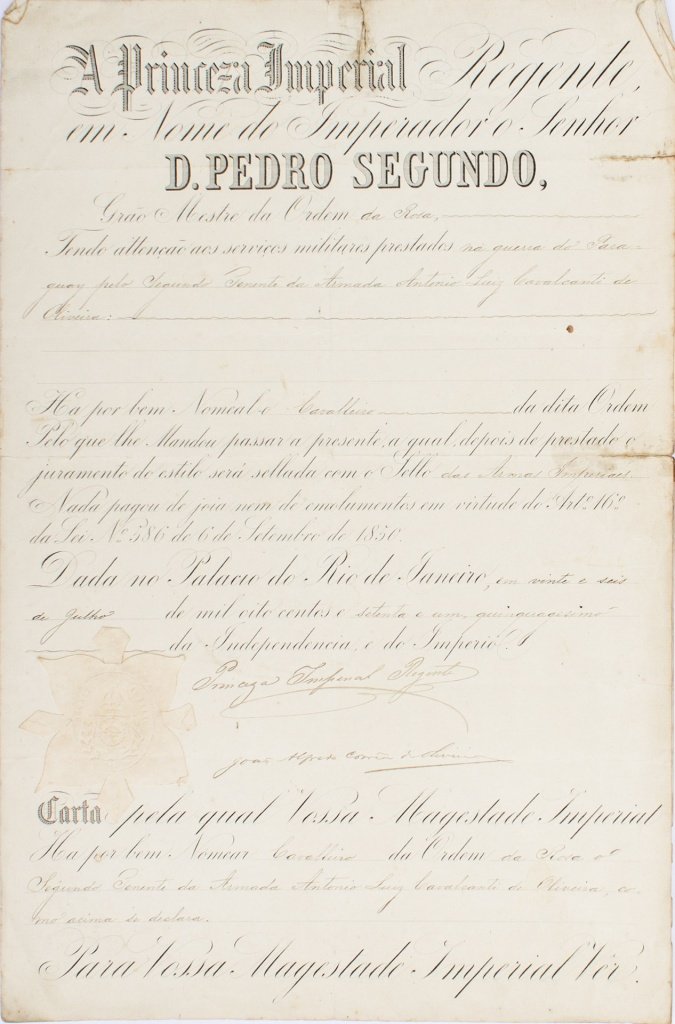 A Princeza Imperial Regente,
em Nome do Imperador o Senhor
D. PEDRO SEGUNDO,
Grão Mestre da Ordem da Rosa,
Tendo attenção aos serviços militares prestados na guerra do Para-
guay pelo Segundo Tenente da Armada Antonio Luiz Cavalcanti de
Oliveira:
Ha por bem Nomeal-o Cavalleiro da dita Ordem
Pelo que lhe Mandou passar a presente, a qual, depois de prestado o
juramento do estilo será sellada com o Sello das Armas Imperiaes.
Nada pagou de joia nem de emolumentos em virtude do Artº 16º
da Lei Nº 586 de 6 de Setembro de 1850.
Dada no Palacio do Rio de Janeiro, em vinte e seis
de Julho de mil oito centos e setenta e um, quinquagesimo
da Independencia, e do Imperio.
Princeza Imperial Regente
João Alfredo Corrêa de Oliveira
Carta pela qual Vossa Magestade Imperial
Ha por bem Nomear Cavalleiro da Ordem da Rosa o
Segundo Tenente da Armada Antonio Luiz Cavalcanti de Oliveira, co-
mo acima se declara.
Para Vossa Magestade Imperial Vêr.